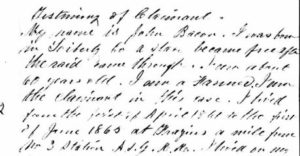 Testimony of Claimant.
My name is John Bacon. I was born
in Liberty Co a slave became free after
the raid came through. I am about
60 years old. I am a Farmer. I am
the claimant in this case. I lived
from the first of April 1861 to the first
of June 1865 at a mile from
No 3 Station A. & G. R. Ro. I lived on my